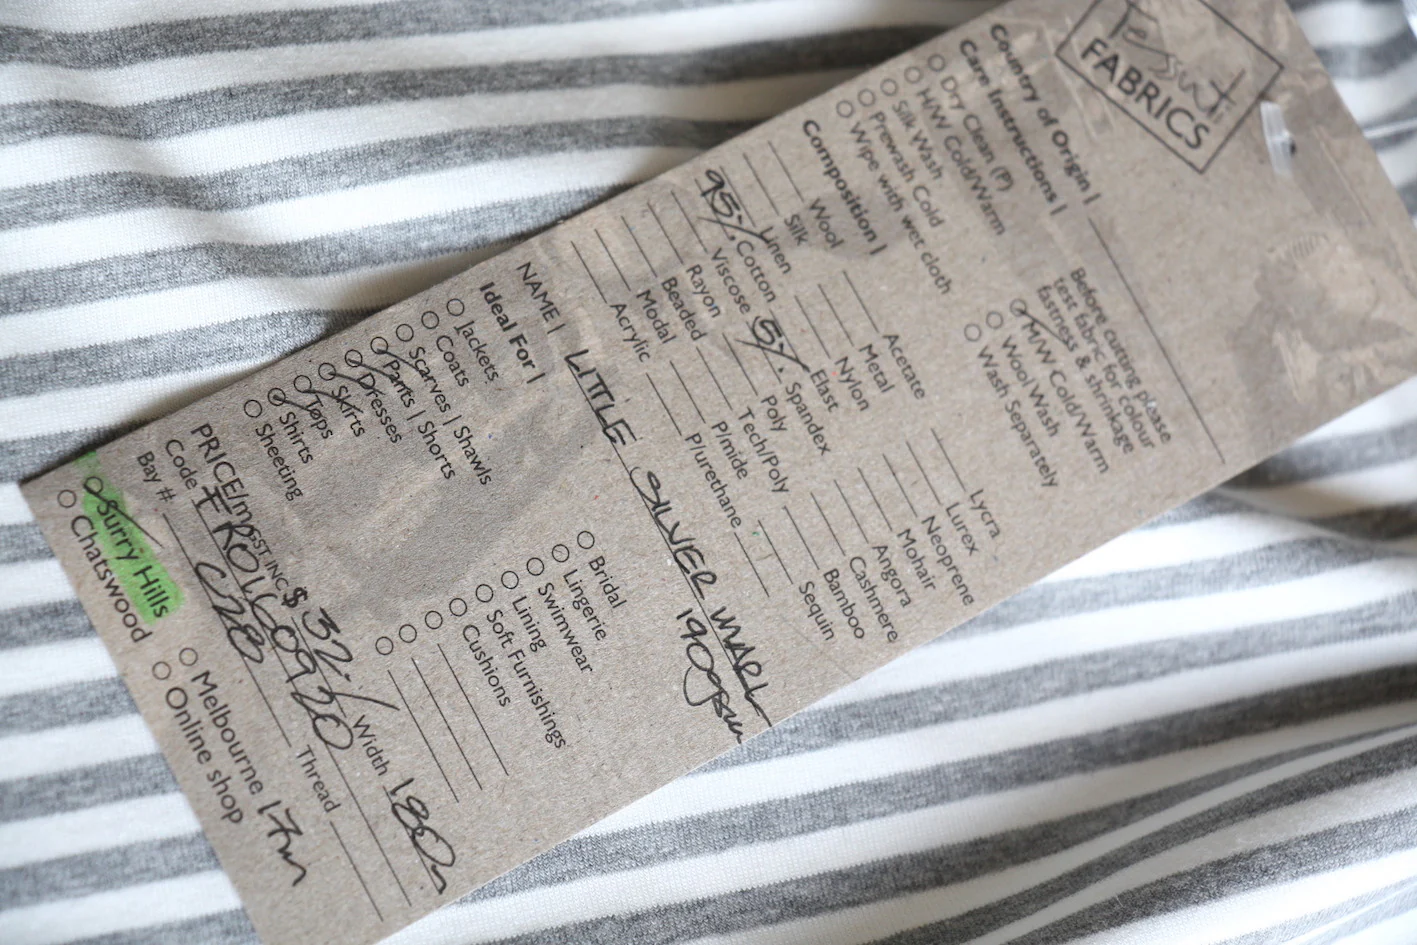 Tessuti
FABRICS
Country of Origin |
Care Instructions |
Dry Clean (P)
H/W Cold/Warm
Silk Wash
Prewash Cold
Wipe with wet cloth
Before cutting please
test fabric for colour
fastness & shrinkage
M/W Cold/Warm
Wool Wash
Wash Separately
Composition |
Wool
Silk
Linen
95% Cotton
Viscose
Rayon
Beaded
Modal
Acrylic
Acetate
Metal
Nylon
Elast
5% Spandex
Poly
Tech/Poly
P/mide
P/urethane
Lycra
Lurex
Neoprene
Mohair
Angora
Cashmere
Bamboo
Sequin
NAME | LITTLE SILVER MARL
190gsm
Ideal For |
Jackets
Coats
Scarves | Shawls
Pants | Shorts
Dresses
Skirts
Tops
Shirts
Sheeting
Bridal
Lingerie
Swimwear
Lining
Soft Furnishings
Cushions
PRICE/m GST INC $ 32 Width 180
Code
Bay # C28 Thread
Surry Hills
Chatswood
Melbourne 17m
Online shop